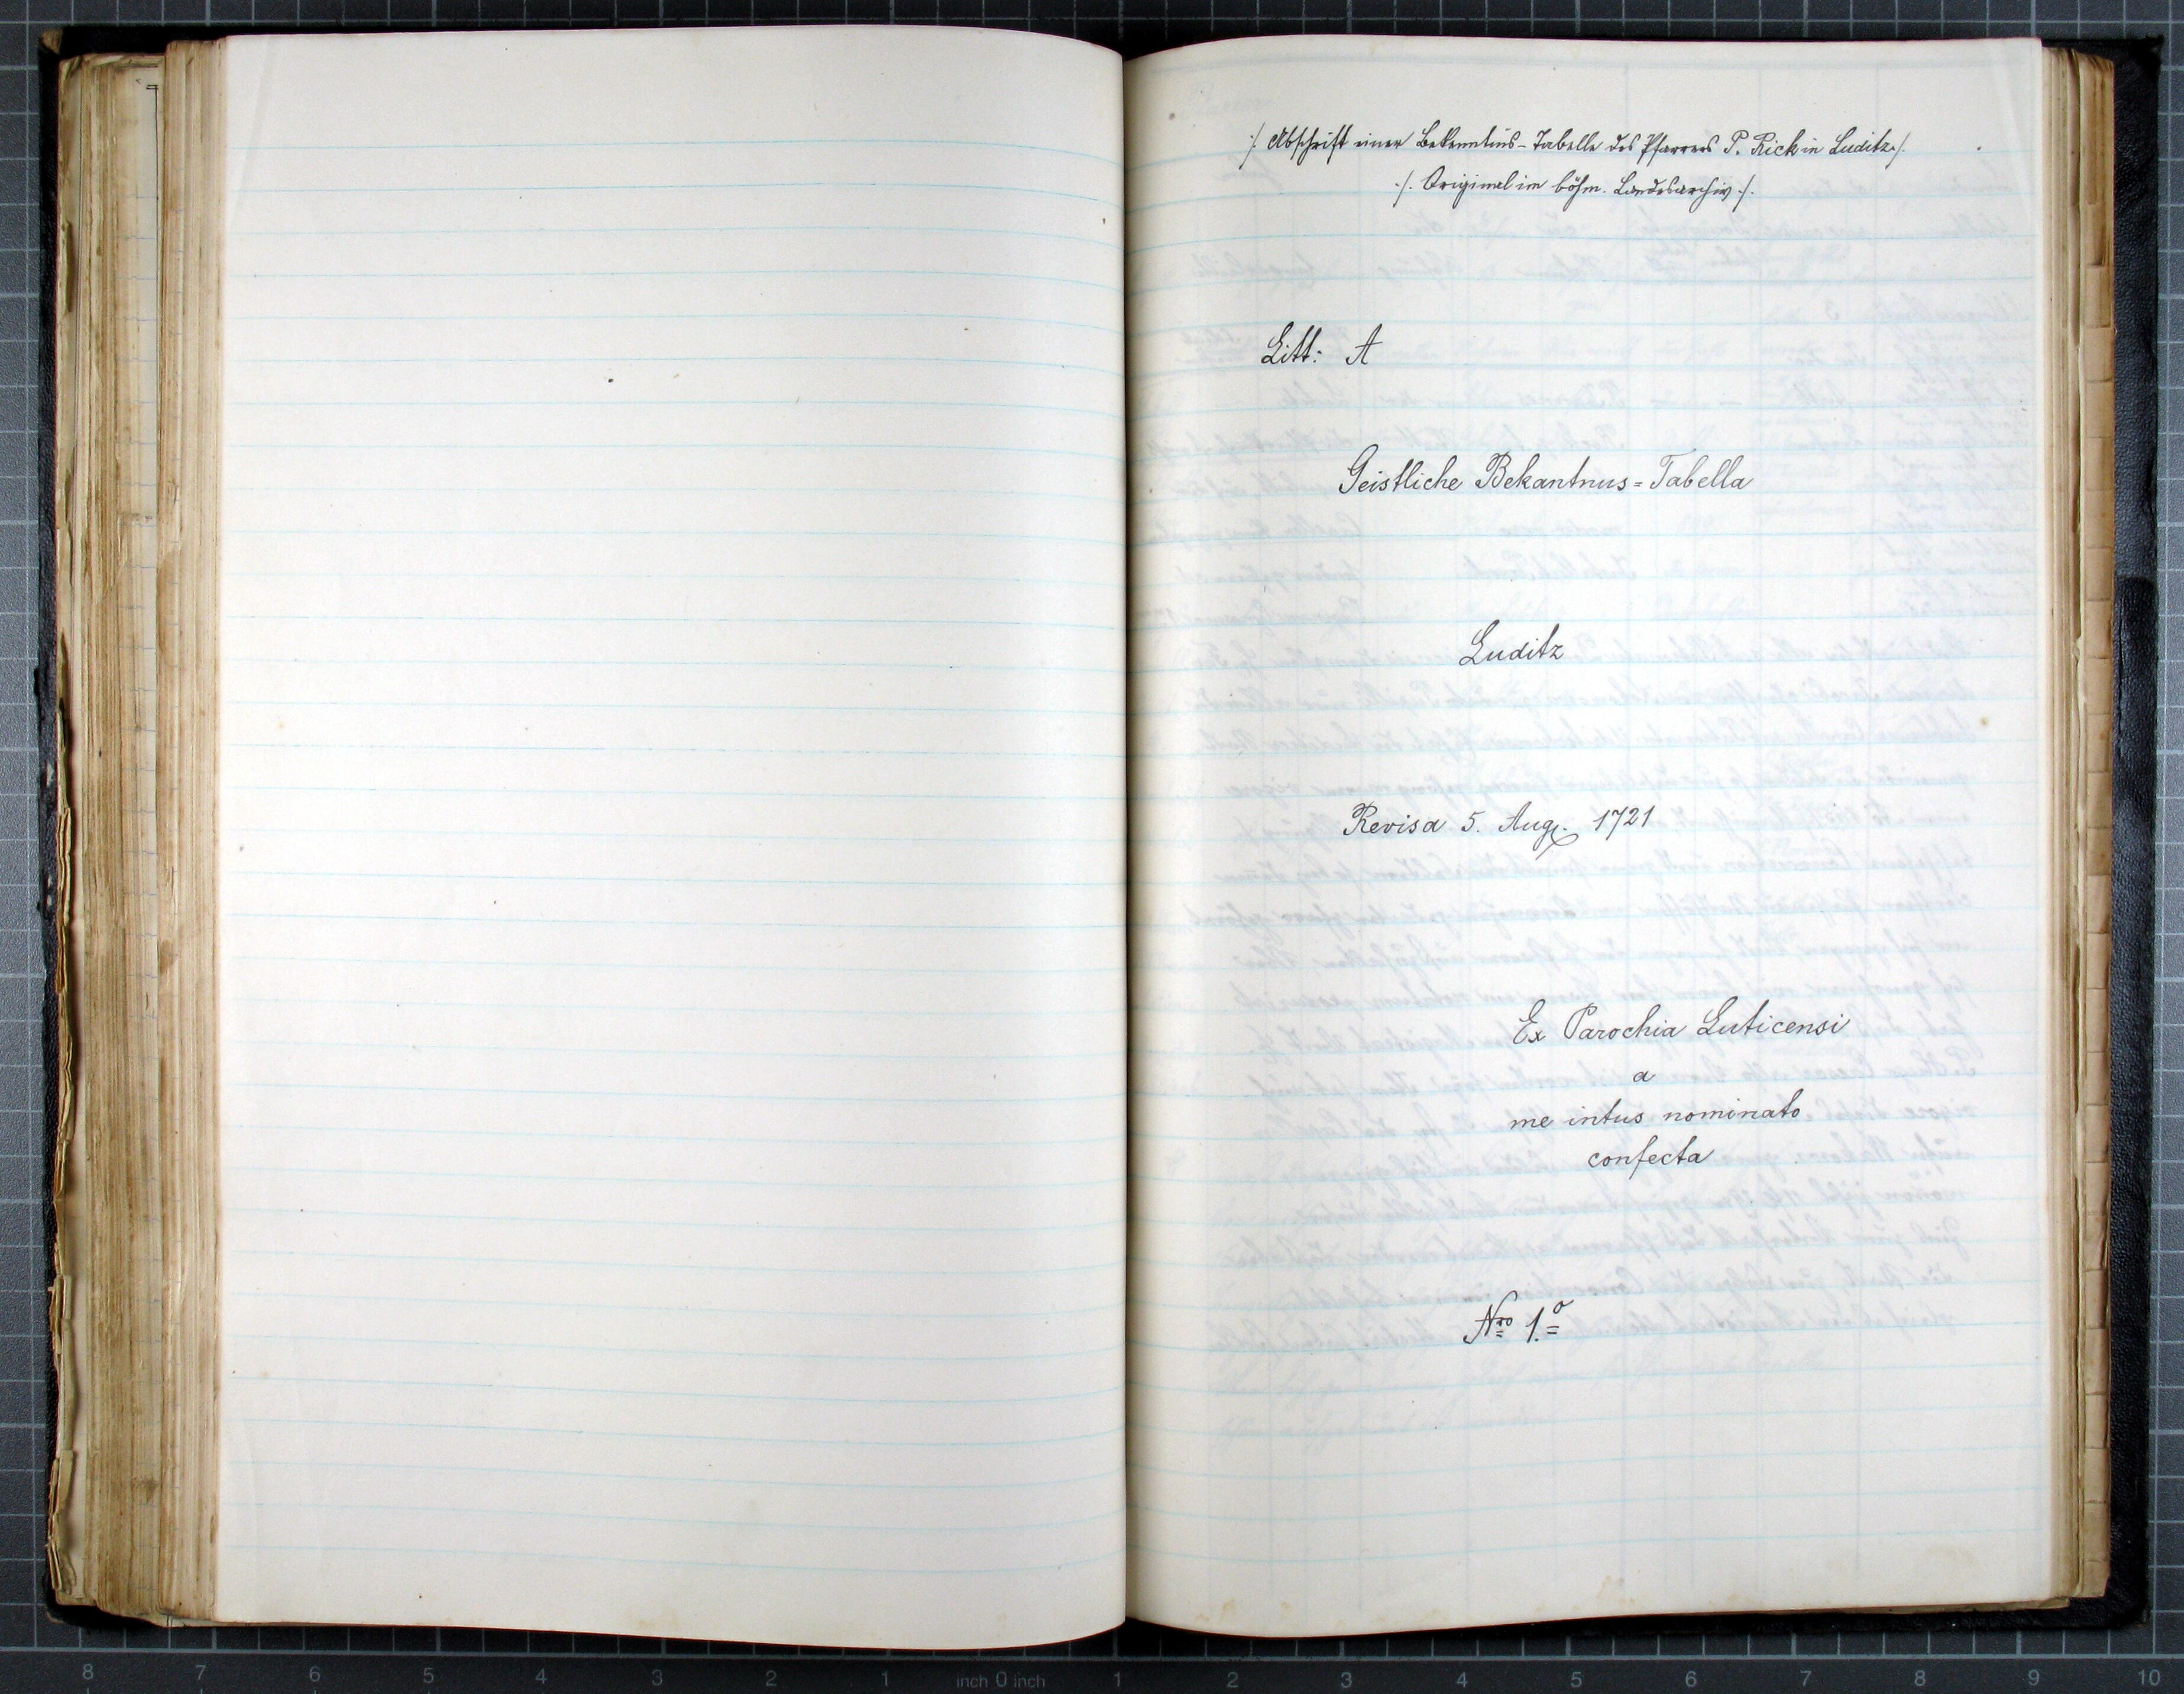 /. Abschrift einer Bekenntnis-Tabelle des Pfarrers P. Rick in Luditz /.
./. Original im böhm. Landesarchiv ./.
Litt: A
Geistliche Bekantnus=Tabella
Luditz
Revisa 5. Aug. 1721
Ex Parochia Luticensi
a
me intus nominato
confecta
Nro 1.o
8 7 6 5 4 3 2 1 inch 0 inch 1 2 3 4 5 6 7 8 9 10